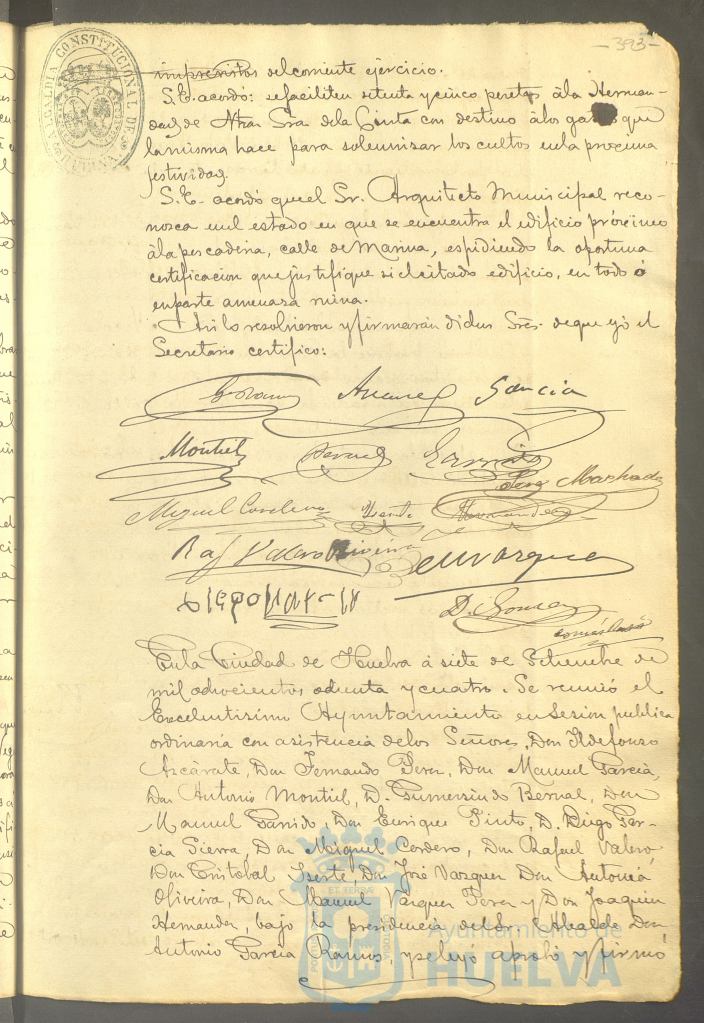 -393-
ALCALDIA CONSTITUCIONAL DE HUELVA
imprevistos del corriente ejercicio.
S.E. acordó: se faciliten setenta y cinco pesetas á la Herman-
dad de Ntra Sra de la Cinta con destino á los gastos que
la misma hace para solemnizar los cultos en la procsima
festividad.
S.E. acordó que el Sr. Arquitecto Municipal reco-
nosca en el estado en que se encuentra el edificio prócsimo
á la pescaderia, calle de Marina, espidiendo la oportuna
certificacion que justifique si el citado edificio, en todo ó
en parte amenaza ruina.
Asi lo resolvieron y firmarán dichos Sres. de que yó el
Secretario certifico:
Garcia
Montiel Bernal Garrido
Jose Machado
Miguel Cordero Iseste Hernandez
Raf Valero Oliveira
D. G Sierra
En la Ciudad de Huelva á siete de Setiembre de
mil ochocientos ochenta y cuatro. Se reunió el
Excelentisimo Ayuntamiento en Sesión publica
ordinaria con asistencia de los Señores, Don Ildefonso
Azcárate, Don Fernando Perez, Don Manuel Garcia,
Don Antonio Montiel, D. Gumersindo Bernal, Don
Manuel Garrido, Don Enrique Pinto, D. Diego Gar-
cia Sierra, Don Miguel Cordero, Don Rafael Valero,
Don Cristobal Iseste, Don José Vazquez Don Antonio
Oliveira, Don Manuel Vazquez Perez y Don Joaquin
Hernandez, bajo la presidencia del Sr. Alcalde Don
Antonio Garcia Ramos, y se leyó aprobó y firmó
Ayuntamiento de
HUELVA